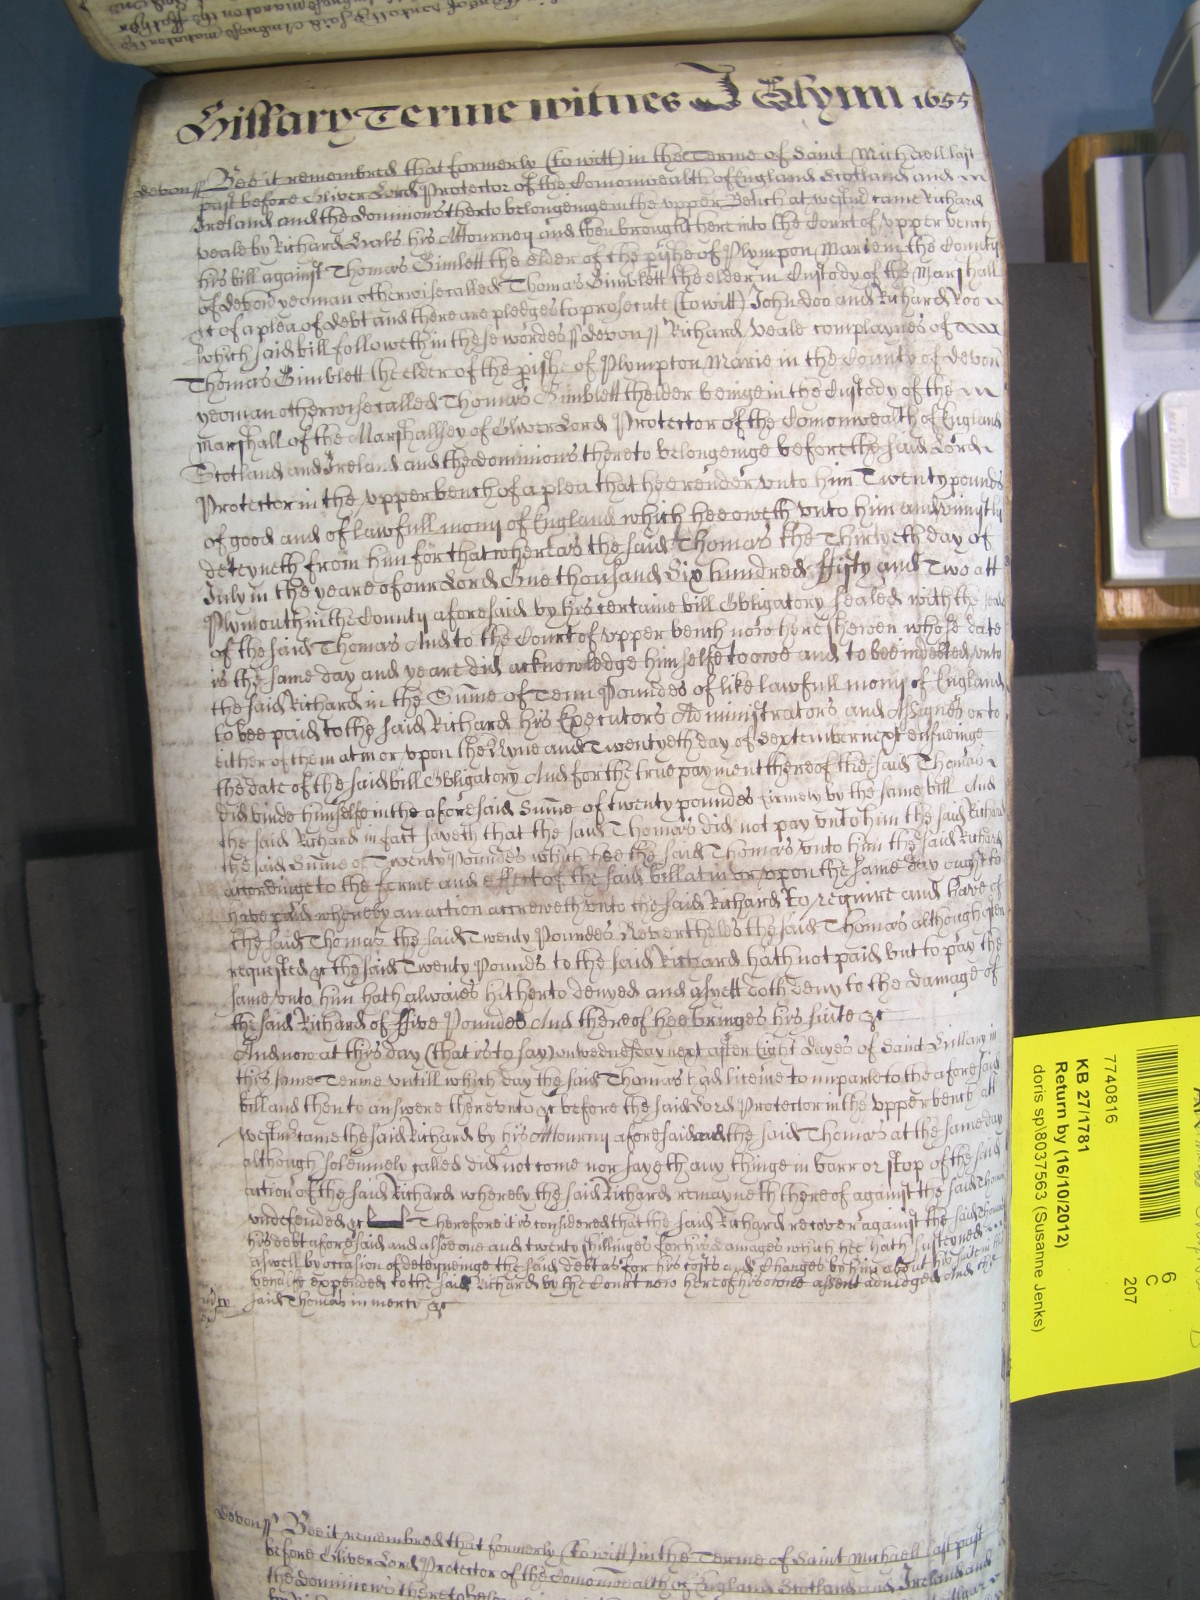 Hillary Terme witnes J Glynn 1655
Devon ss Bee it remembred that formerly (to witt) in the Terme of Saint Michaell last
past before Oliver Lord Protector of the Comonwealth of England Scotland and
Ireland and the dominions therto belongeinge in the vpper Bench at westmr came Richard
veale by Richard Quals his Attourney and then brought here into the Court of vpper bench
his bill against Thomas Gimlett the elder of the pishe of Plympon Marie in the County
of devon yeoman otherwise called Thomas Gimblett the elder in Custody of the Marshall
&c of a plea of debt and there are pledges to prosecute (to witt) John doo and Richard Roo
which said bill followeth in these wordes ss devon ss Richard veale complaynes of
Thomas Gimblett the elder of the pish of Plympton Marie in the County of devon
yeoman otherwise called Thomas Gimblett thelder beinge in the Custody of the
Marshall of the Marshallsey of Oliver Lord Protector of the Comonwealth of England
Scotland and Ireland and the dominions thereto belongeinge before the said Lord
Protector in the vpper bench of a plea that hee render vnto him Twenty pounds
of good and of lawfull mony of England which hee oweth vnto him and vniustly
deteyneth from him for that whereas the said Thomas the Thirtyeth day of
July in the yeare of our Lord One thousand Six hundred ffifty and Two att
Plymouth in the County aforesaid by his certaine bill Obligatory sealed with the seale
of the said Thomas And to the Court of vpper bench now here shewen whose date
is the same day and yeare did acknowledge himselfe to owe and to bee indebted vnto
the said Richard in the Sume of Tenn Poundes of like lawfull mony of England
to bee paid to the said Richard his Executors Administrators and Assignes or to
either of them at in or vpon the Nyne and Twentyeth day of September next ensueinge
the date of the said bill Obligatory And for the true payment thereof the said Thomas
did binde himselfe in the aforesaid Sume of twenty poundes firmely by the same bill And
the said Richard in fact sayeth that the said Thomas did not pay vnto him the said Richard
the said Sume of Twenty Poundes which hee the said Thomas vnto him the said Richard
accordinge to the forme and effect of the said bill at in or vpon the same day ought to
have paid whereby an action accreweth vnto the said Richard to require and have of
the said Thomas the said Twenty Poundes Neverthelesse the said Thomas although often
requested &c the said Twenty Pounds to the said Richard hath not paid but to pay the
same vnto him hath alwaies hitherto denyed and as yett doth deny to the damage of
the said Richard of ffive Poundes And thereof hee bringes his suite &c
And now at this day (that is to say) on wednesday next after Eight dayes of Saint Hillary in
this same Terme vntill which day the said Thomas had licence to imparle to the aforesaid
bill and then to answere therevnto &c before the said Lord Protector in the vpper bench att
westmr came the said Richard by his Attourny aforesaid and the said Thomas at the same day
although solemnely called did not come nor sayeth any thinge in barr or stop of the said
action of the said Richard whereby the said Richard remayneth thereof against the said Thomas
vndefended &c Therefore it is considered that the said Richard recover against the said Thomas
his debt aforesaid and alsoe one and twenty shillinges for his damages which hee hath susteyned
aswell by occasion of deteyneinge the said debt as for his costs and Charges by him about his suite in this
behalfe expended to the said Richard by the Court now here of his owne assent adiudged And the
mcy said Thomas in mercy &c
Devon ss Bee it remembred that formerly (to witt) in the Terme of Saint Michaell last past
before Oliver Lord Protector of the Comonwealth of England Scotland and Ireland and
the dominions thereto
7740816
KB 27/1781
Return by (16/10/2012)
doris sp\8037563 (Susanne Jenks)
6
C
207